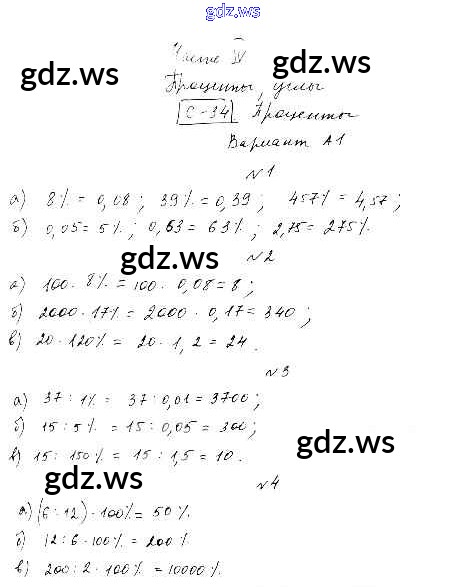 gdz.ws
Часть IV
gdz.ws gdz.ws
Проценты, углы
С-34 Проценты
Вариант А1
№1
а) 8% = 0,08; 39% = 0,39; 457% = 4,57;
б) 0,05 = 5%; 0,63 = 63%; 2,75 = 275%.
gdz.ws №2
а) 100 · 8% = 100 · 0,08 = 8;
gdz.ws
б) 2000 · 17% = 2000 · 0,17 = 340;
в) 20 · 120% = 20 · 1,2 = 24.
№3
а) 37 : 1% = 37 : 0,01 = 3700;
б) 15 : 5% = 15 : 0,05 = 300;
gdz.ws
в) 15 : 150% = 15 : 1,5 = 10.
gdz.ws №4
а) (6 : 12) · 100% = 50%.
б) 12 : 6 · 100% = 200%.
в) 200 : 2 · 100% = 10000%.